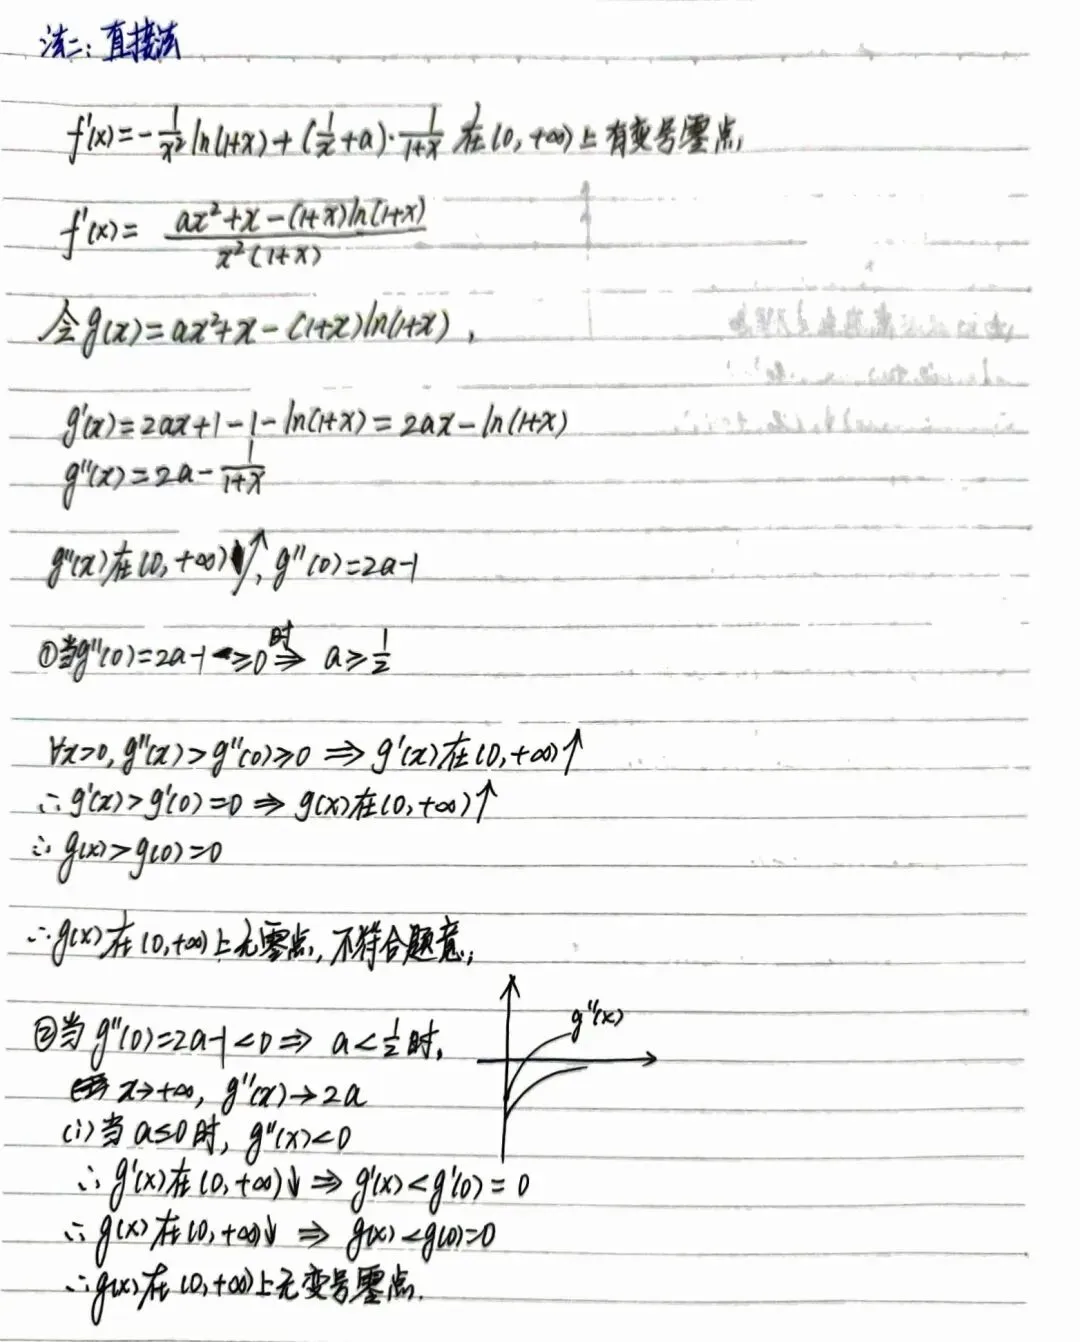 法二：直接法
f'(x)=-\frac{1}{x^2}ln(1+x)+(\frac{1}{x}+a)·\frac{1}{1+x} 在(0,+∞)上有变号零点,
f'(x)= \frac{ax^2+x-(1+x)ln(1+x)}{x^2(1+x)}
令g(x)=ax^2+x-(1+x)ln(1+x),
g'(x)=2ax+1-1-ln(1+x)=2ax-ln(1+x)
g''(x)=2a-\frac{1}{1+x}
g''(x)在(0,+∞)↑, g''(0)=2a-1
①当g''(0)=2a-1≥0时⇒ a≥\frac{1}{2}
∀x>0, g''(x)>g''(0)≥0 ⇒ g'(x)在(0,+∞)↑
∴g'(x)>g'(0)=0 ⇒ g(x)在(0,+∞)↑
∴g(x)>g(0)=0
∴g(x)在(0,+∞)上无零点,不符合题意;
②当g''(0)=2a-1<0⇒ a<\frac{1}{2}时,
g''(x)
x→+∞, g''(x)→2a
(i)当a≤0时, g''(x)<0
∴g'(x)在(0,+∞)↓ ⇒ g'(x)<g'(0)=0
∴g(x)在(0,+∞)↓ ⇒ g(x)<g(0)=0
∴g(x)在(0,+∞)上无变号零点.